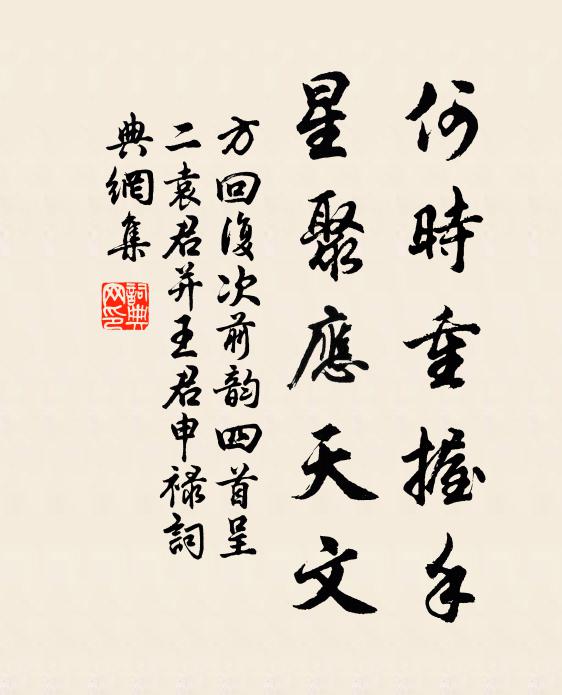 何時重握手
星聚應天文
方回復次前韵四首呈
二袁君并王君申禄詞
典網集
詞典网印